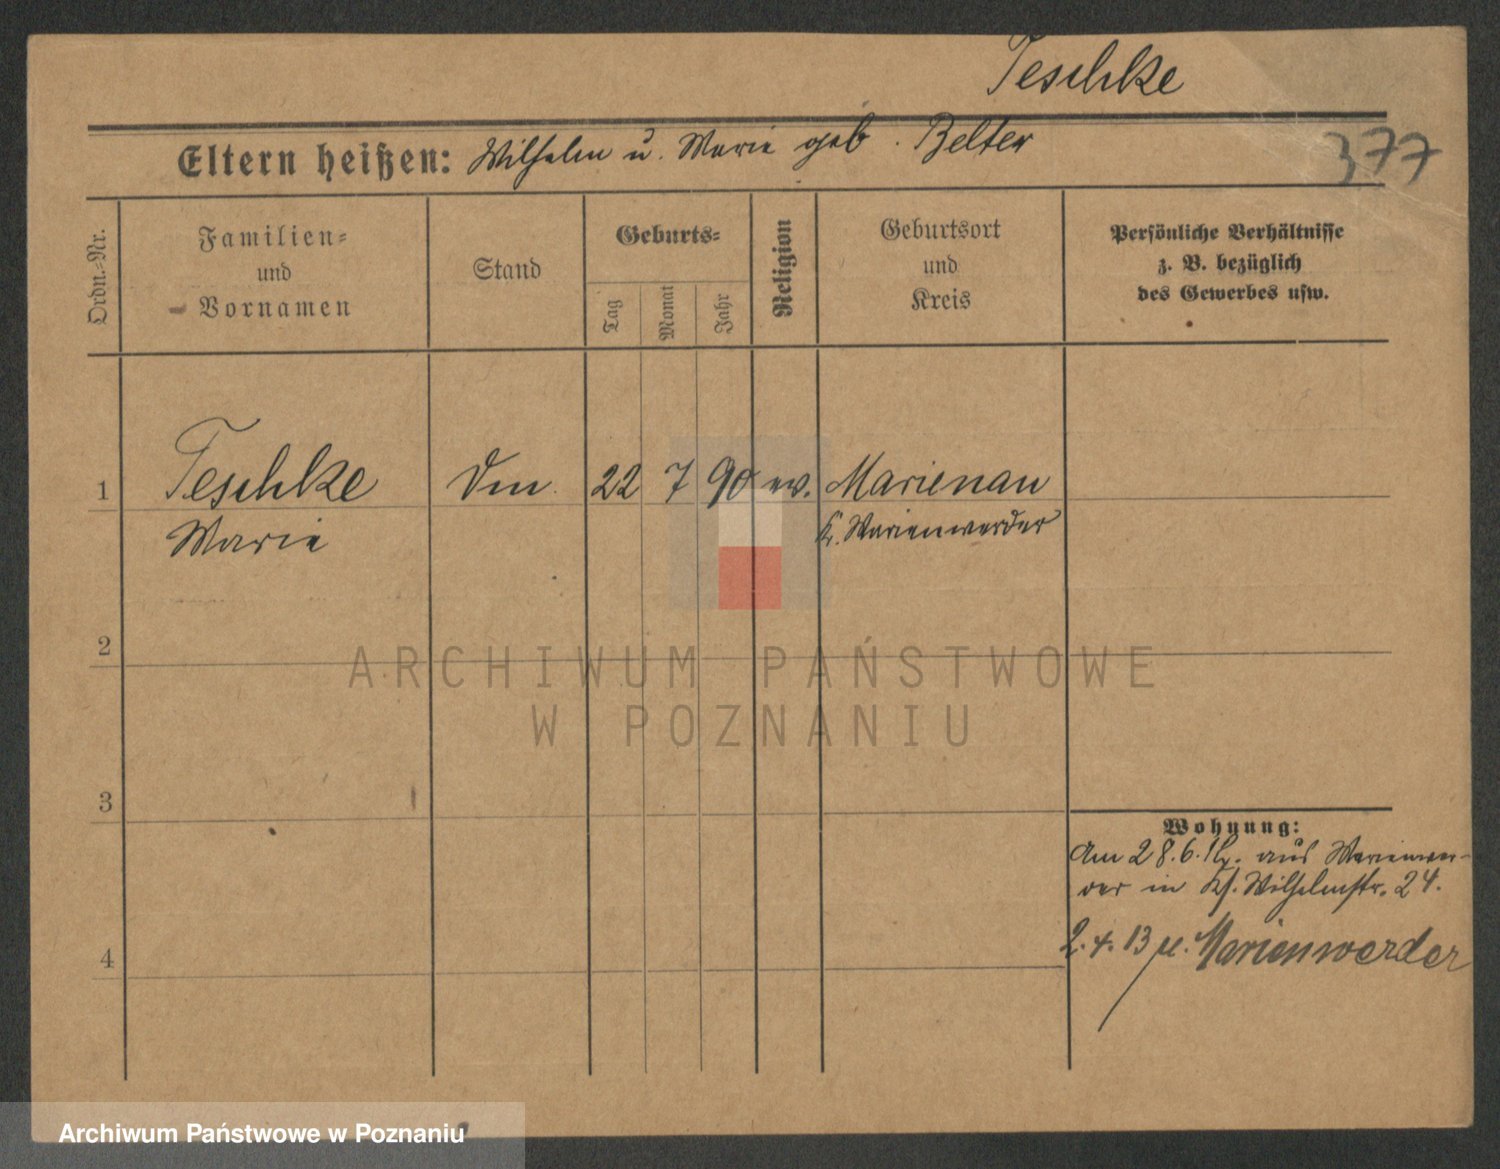 Teschke
Eltern heißen: Wilhelm u. Marie geb. Belter
377
Ordn.-Nr.
Familien-
und
Vornamen
Stand
Geburts-
Tag
Monat
Jahr
Religion
Geburtsort
und
Kreis
Persönliche Verhältnisse
z. B. bezüglich
des Gewerbes usw.
1 Teschke 22 7 90 ev. Marienau
Marie Kr. Marienwerder
2
3
4
Wohnung:
Am 28.6. aus Marienwer-
der in Wilhelmstr. 24.
2.4.13 Marienwerder
ARCHIWUM PAŃSTWOWE
W POZNANIU
Archiwum Państwowe w Poznaniu